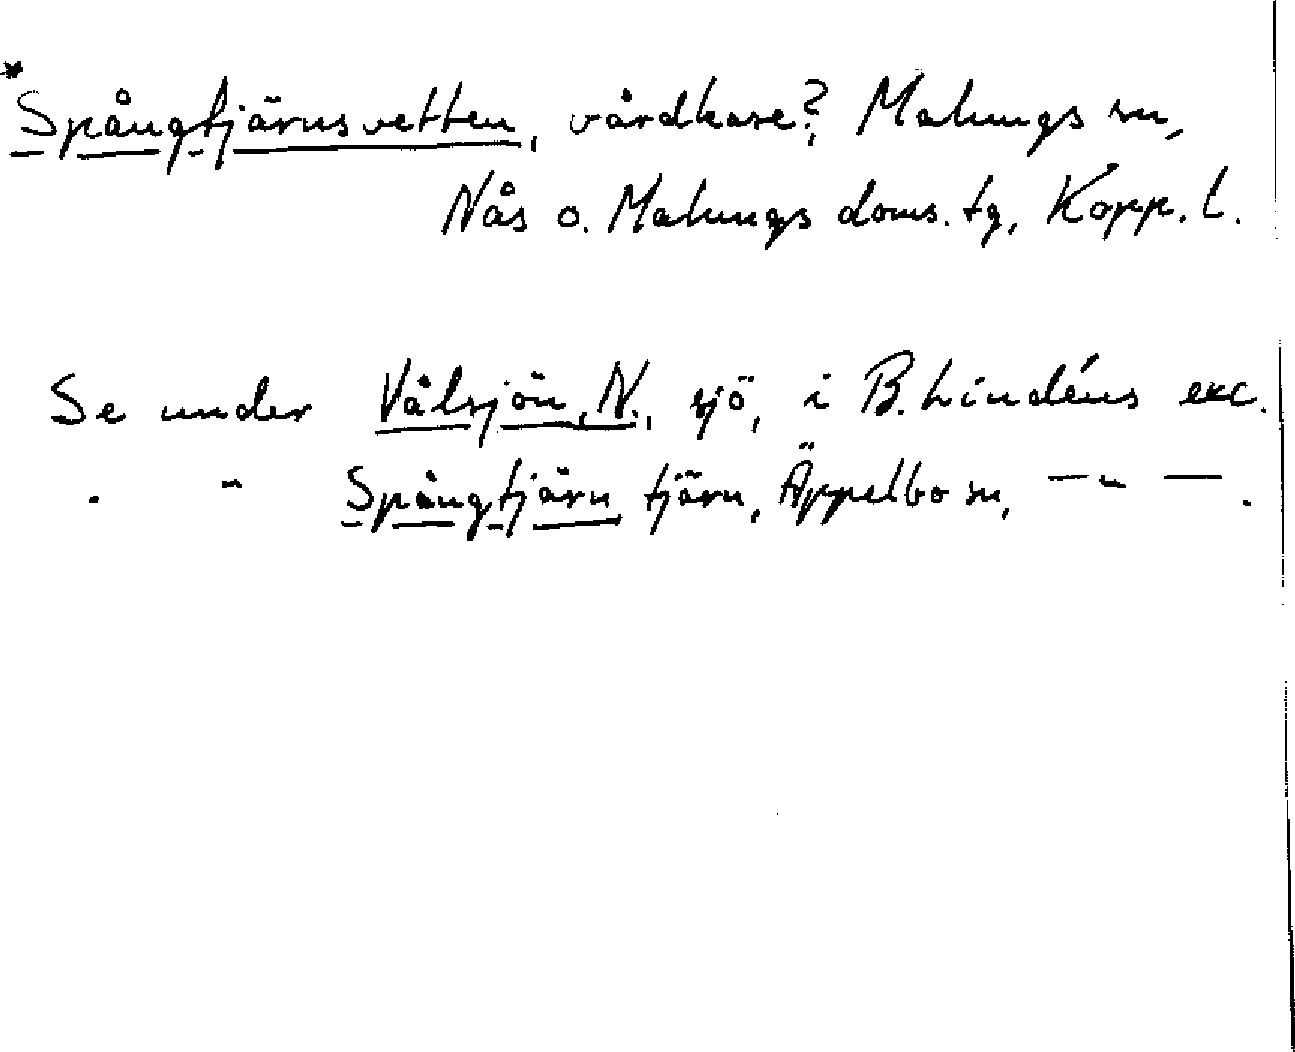 *Spångtjärnsvetten, vårdkase?, Malungs sn,
Nås o. Malungs doms. tg, Kopp. l.
Se under Vålsjön, N., sjö, i B. Lindéns exc.
. " Spångtjärn tjärn, Äppelbo sn, — " — .